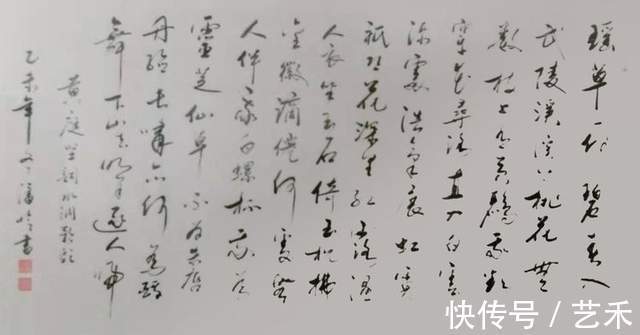 瑶草一何碧春入
武陵溪溪上桃花無
数枝上有黄鹂我欲
穿花尋路直入白雲
深處浩气展虹霓
祇恐花深里红露湿
人衣坐玉石倚玉枕拂
金徽谪仙何處無
人伴我白螺杯我为
靈芝仙草不为朱唇
丹脸长啸亦何为醉
舞下山去明月逐人归
黄庭坚词水调歌头
乙未年
书
快传号 / 艺禾